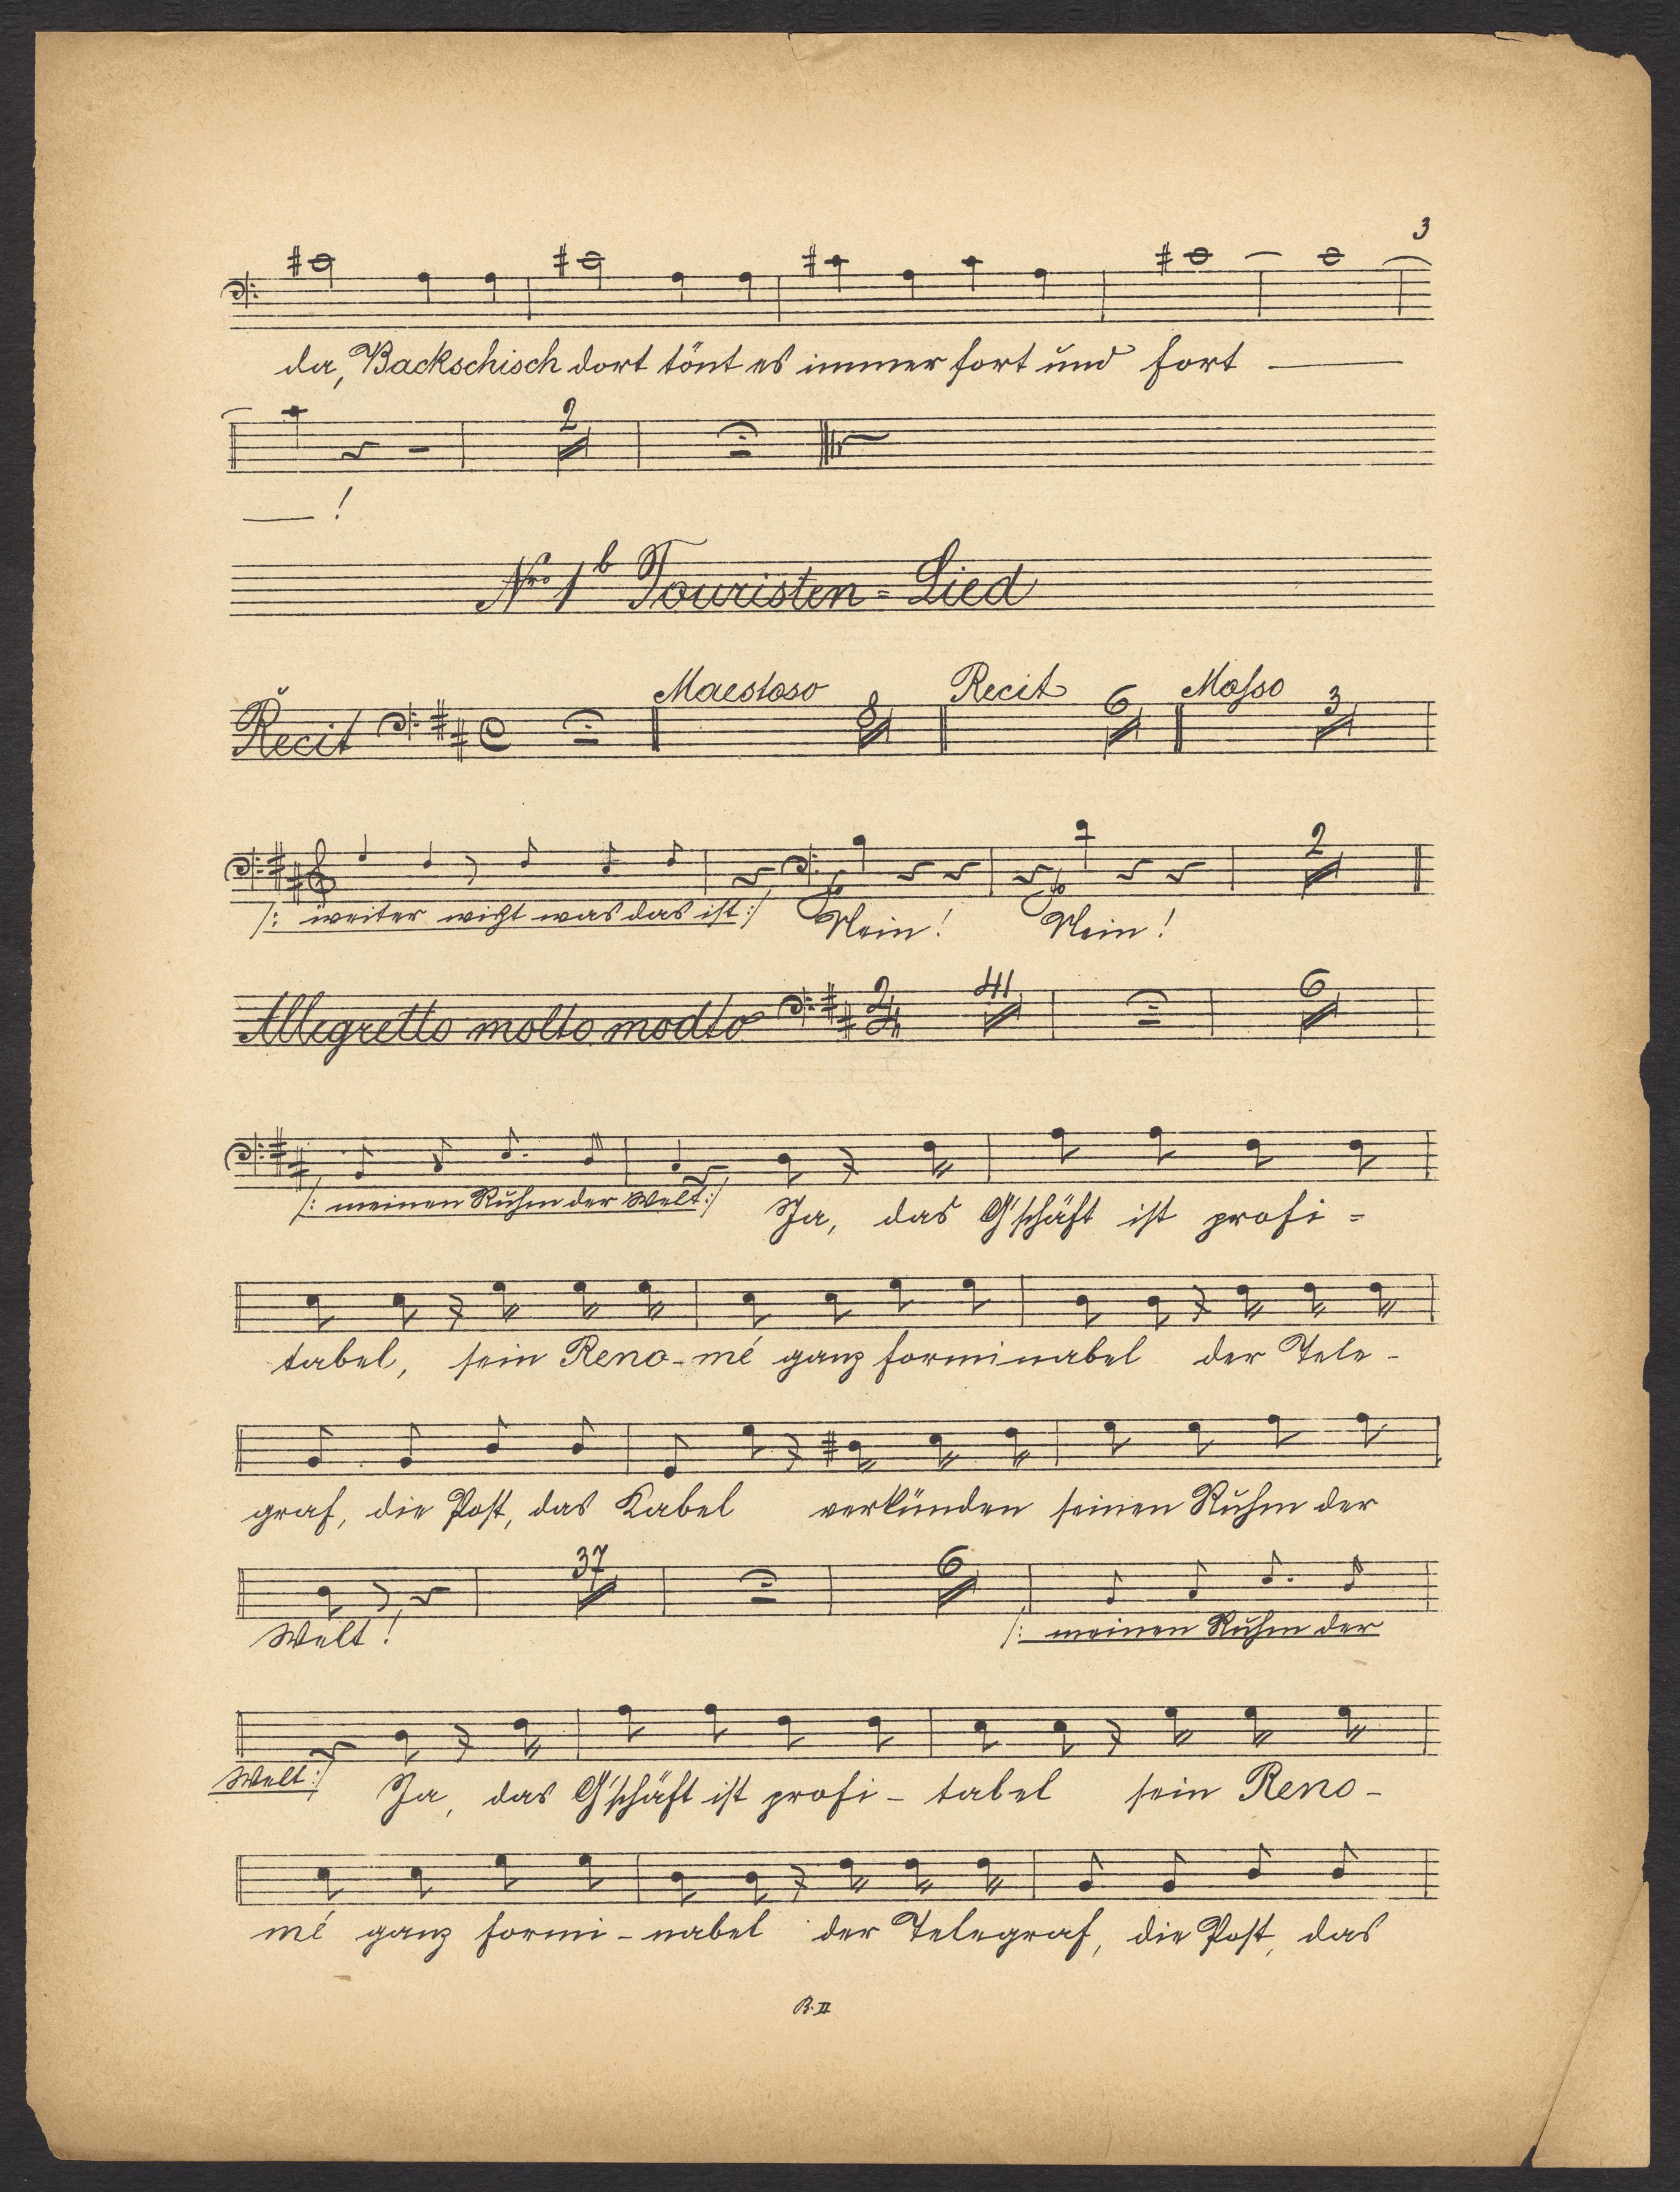 3
da, Backschisch dort tönt es immer fort und fort
2
!
Nro 1b Touristen=Lied
Maestoso Recit Mosso
Recit 8 6 3
2
/: weiter nicht was das ist :/ Nein! Nein!
Allegretto molto modto 2 4 41 6
/: meinen Ruhm der Welt :/ Ja, das G'schäft ist profi=
tabel, sein Reno-mé ganz forminabel der Tele-
graf, die Post, das Kabel verkünden seinen Ruhm der
37 6
Welt! /: meinen Ruhm der
Welt :/ Ja, das G'schäft ist profi-tabel sein Reno-
mé ganz formi-nabel der Telegraf, die Post, das
B. II